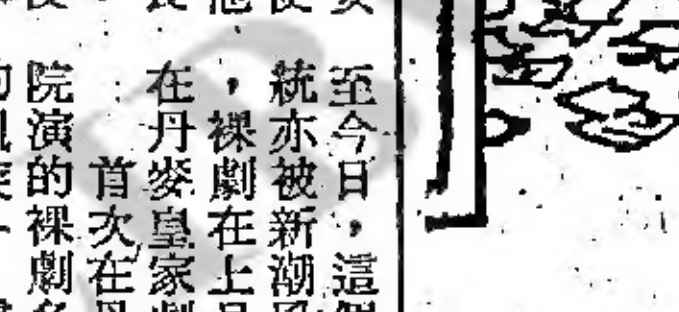 至今日，這個
統亦被新潮風
，裸劇在上月
在丹麥皇家劇
首次在丹
院演的裸劇多